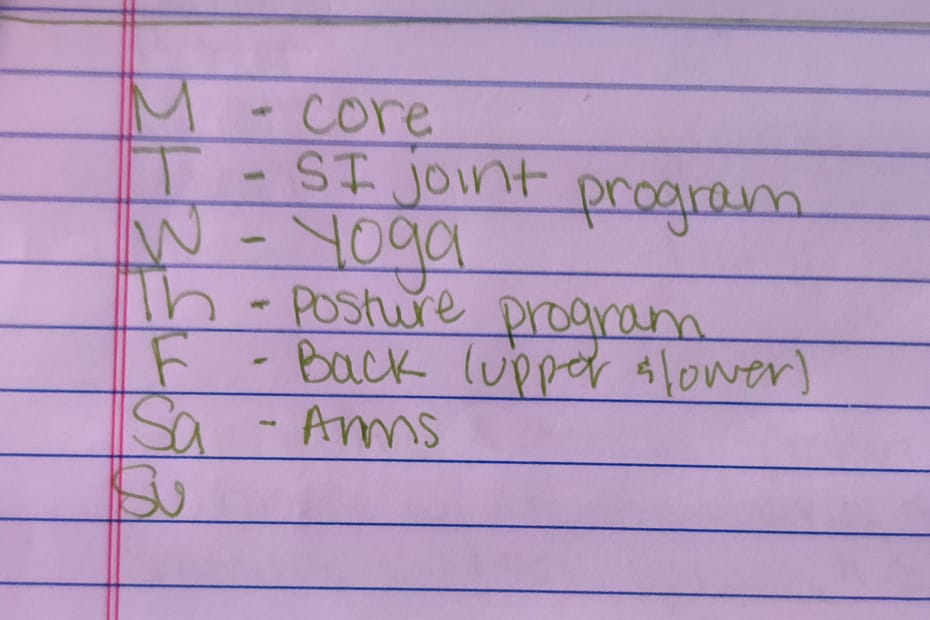 M - core
T - SI joint program
W - Yoga
Th - posture program
F - Back (upper & lower)
Sa - Arms
Su